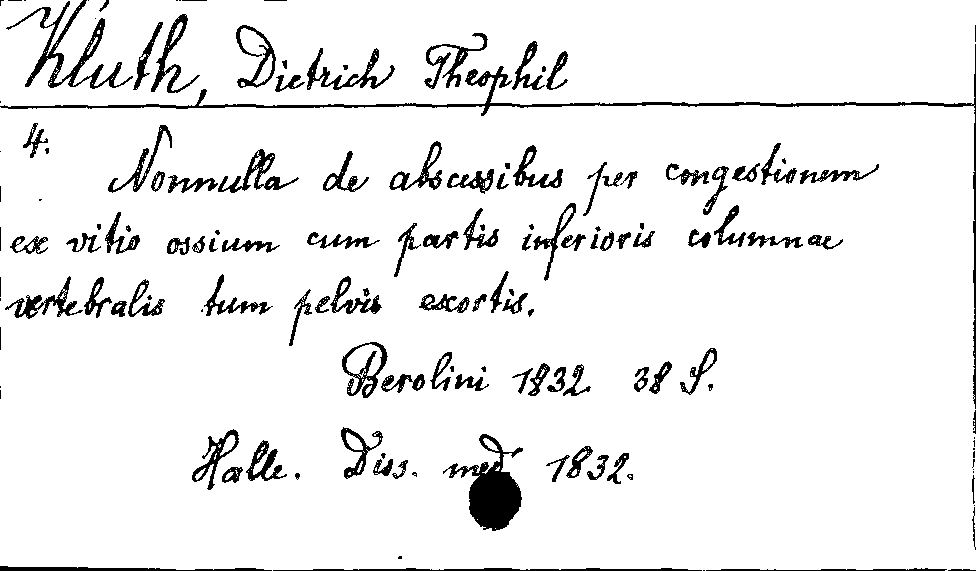 Kluth, Dietrich Theophil
4.
Nonnulla de abscessibus per congestionem
ex vitio ossium cum partis inferioris columnae
vertebralis tum pelvis exortis.
Berolini 1832 38 S.
Halle. Diss. med 1832.